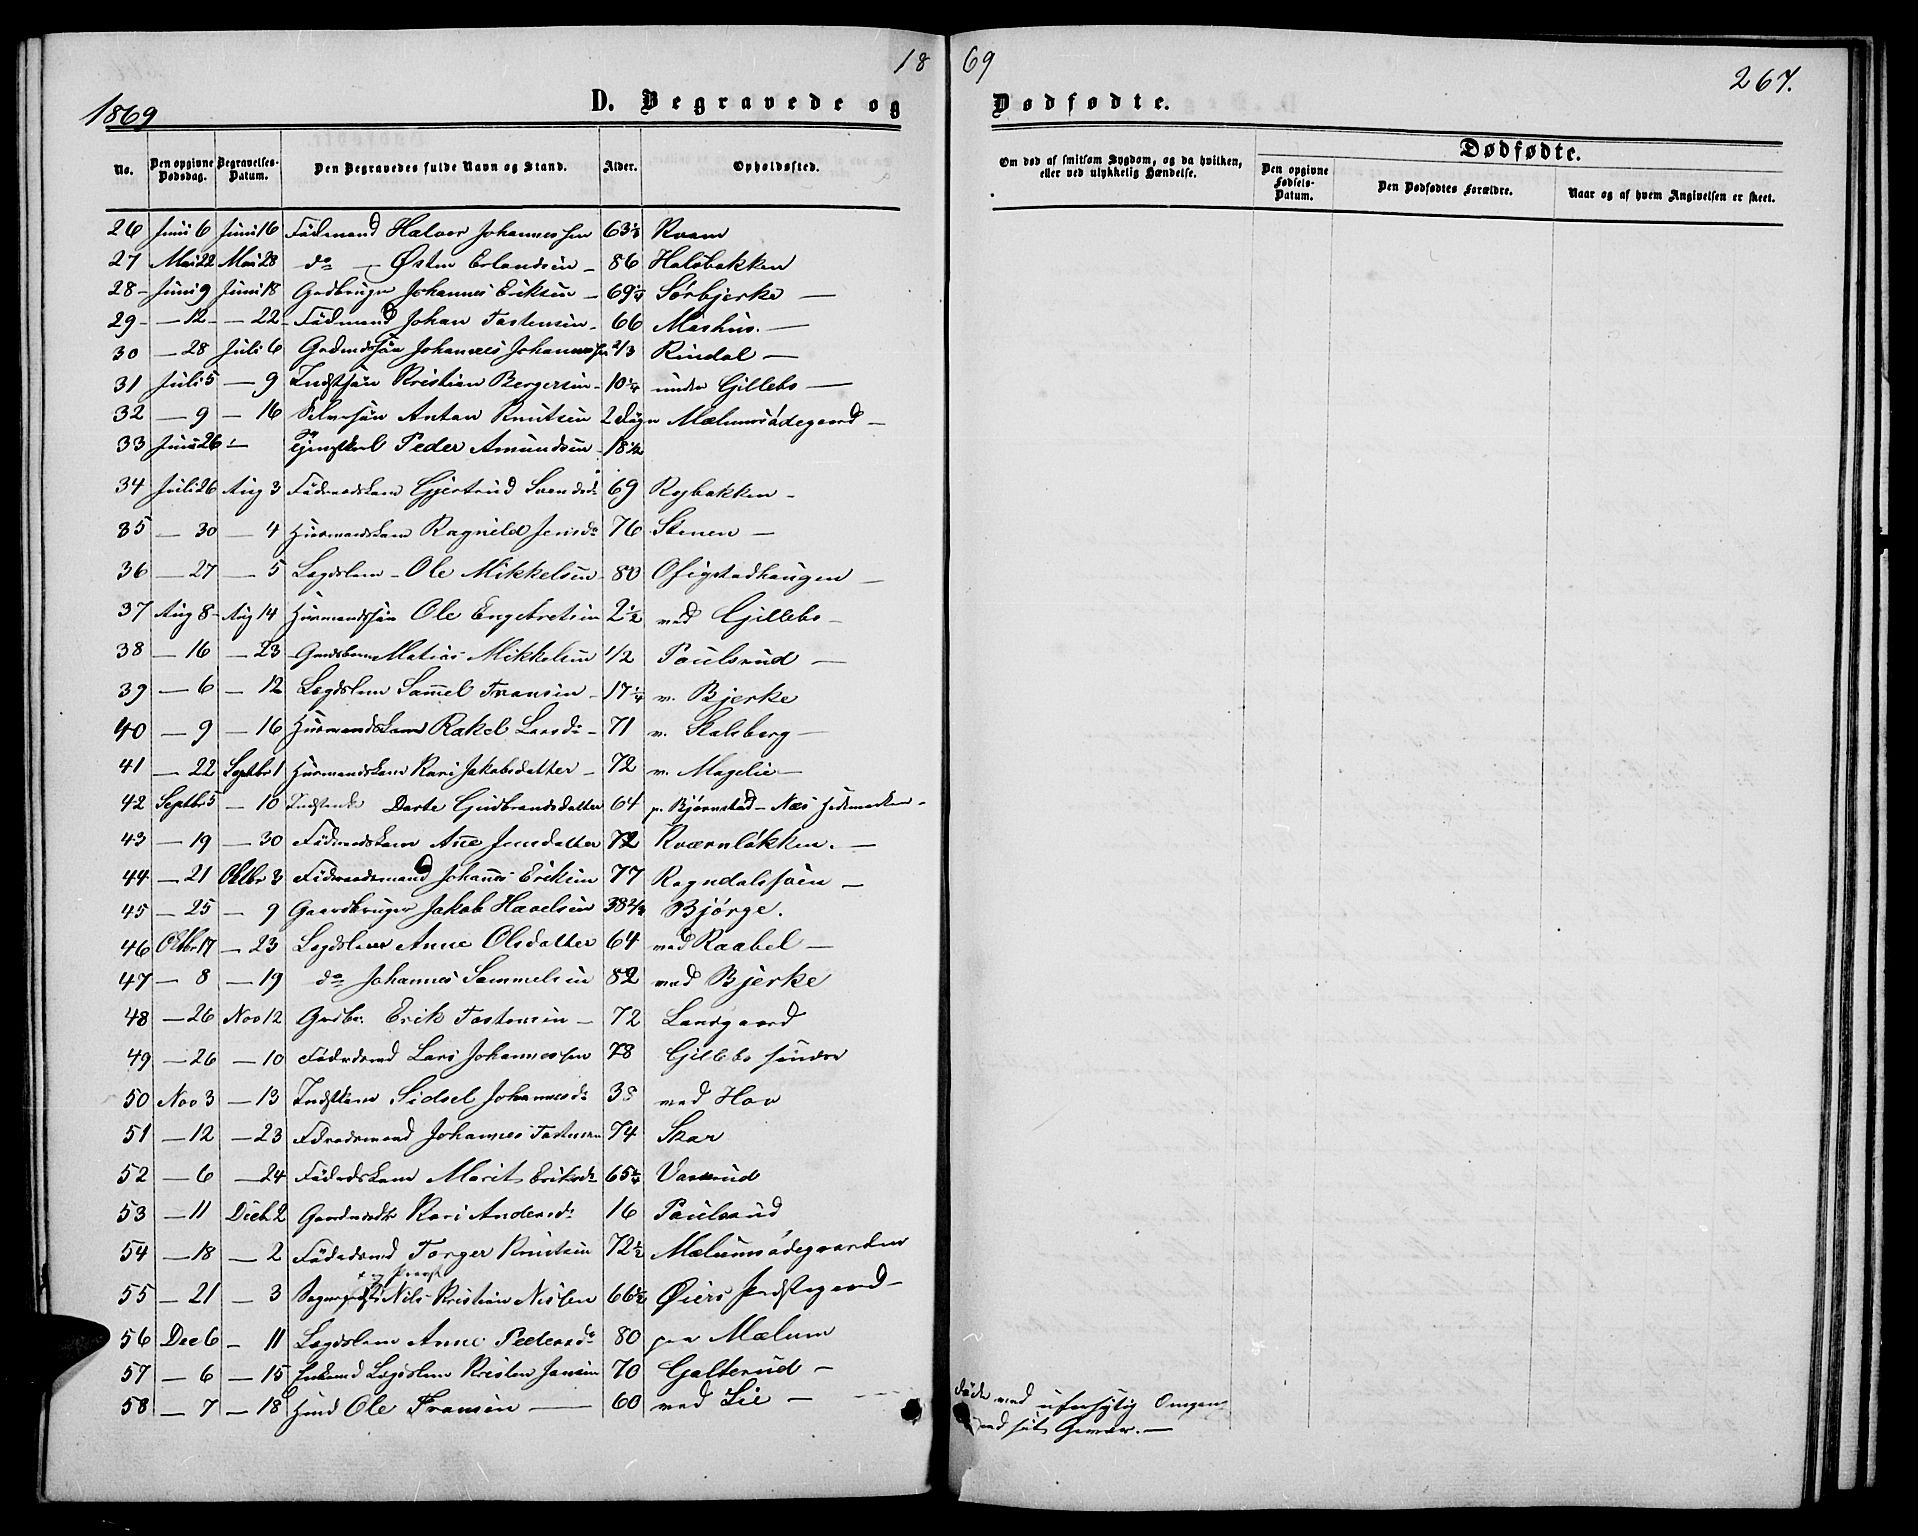 18 69
267.
1869
D. Begravede og Dødfødte.
No. Den opgivne Dødsdag. Begravelses-Datum. Den Begravedes fulde Navn og Stand. Alder. Opholdssted. Om død af smitsom Sygdom, og da hvilken, eller ved ulykkelig Hændelse.
Dødfødte.
Den opgivne Fødsels-Datum. Den Dødfødtes Forældre. Naar og af hvem Angivelsen er skeet.
26 Juni 6 Juni 16 Födmand Halvor Johannessen 63 Kvam
27 Mai 22 Mai 28 do — Østen Erlandsen — 86 Halsbakken
28 - Juni 9 Juni 18 Grdbruger Johannes Eriksen — 69 Sörbjerke —
29 - — 12 - — 22 - Födmand Johan Tostensen - 66 Mashus. —
30 — 28 Juli 6 Grdmdssön Johannes Johannessen 2/3 Rindal —
31 Juli 5 — 9 Indstsön Kristian Bergersen - 10 1/4 under Gillebo —
32 — 9 — 16 Selvsön Anton Knutsen 2 Dögn Mælumsödegaard —
33 Juni 26 — Tjenstkarl Peder Amundsen - 18 1/2
34 Juli 26 Aug 3 Födmdskone Gjertrud Svendsdr 69 Rybakken -
35 — 30 — 4 Huusmandskone Ragnild Jensdr 76 Stenen —
36 — 27 — 5 Lægdslem - Ole Mikkelsen - 80 Ofigstadhaugen —
37 Aug 8 - Aug 14 Huusmandssön Ole Engebretsen 2 1/2 ved Gillebo —
38 — 16 — 23 Matias Mikkelsen 1/2 Paulsrud —
39 — 6 — 12 Lægdslem Samuel Fransen - 17 1/4 v. Bjerke
40 — 9 — 16 Huusmandskone Rakel Larsdr - 71 v. Skalsberg —
41 — 22 Septbr 1 Huusmandskone Kari Jakobsdatter - 72 v. Magelie —
42 Septbr 5 — 10 Dorte Gudbrandsdatter 64 p. Bjørnstad - Næs Hedemarken -
43 — 19 — 30 Födmdskone Anne Jensdatter 72 Kværnløkken. —
44 — 21 Oktbr 3 Föderaadsmand Johannes Eriksen 77 Rogndalssöen —
45 — 25 — 9 Gaardbruger Jakob Havelsen 38 Bjørge.
46 Oktbr 17 — 23 Lægdslem Anne Olsdatter 64 ved Raabel —
47 — 8 — 19 do Johannes Sammelsen 82 ved Bjerke
48 — 26 Nov 12 Grdbr. Erik Tostensen — 72 Landgaard
49 — 26 — 10 Föderdsmd Lars Johannessen 78 Gillebo söndre
50 Nov 3 — 13 Indstkone Sidsel Johannesdr 38 ved Hov
51 — 12 — 23 Föderaadsmand Johannes Tostensen 74 Skar
52 — 6 — 24 Föderdskone Marit Eriksdr 65 Vasrud
53 — 11 Decb 2 Gaardmdsdtr Kari Andersdr 16 Paulsrud
54 — 18 — 2 Föderdsmd Torger Knutsen 72 1/2 Mælumsödegaarden
55 — 21 — 3 Sogneprest og Provst Nils Kristian Nissen 66 1/2 Øiers Prestegaard —
56 Dec 6 — 11 Lægdslem Anne Pedersdr 80 paa Mælum
57 — 6 — 15 Enkemd Lægdslem Kristen Jansen 70 Galterud —
58 — 7 — 18 Husmd Ole Fransen — 60 ved Lie —
Döde ved uforsigtig Omgang med sit Gevær. —